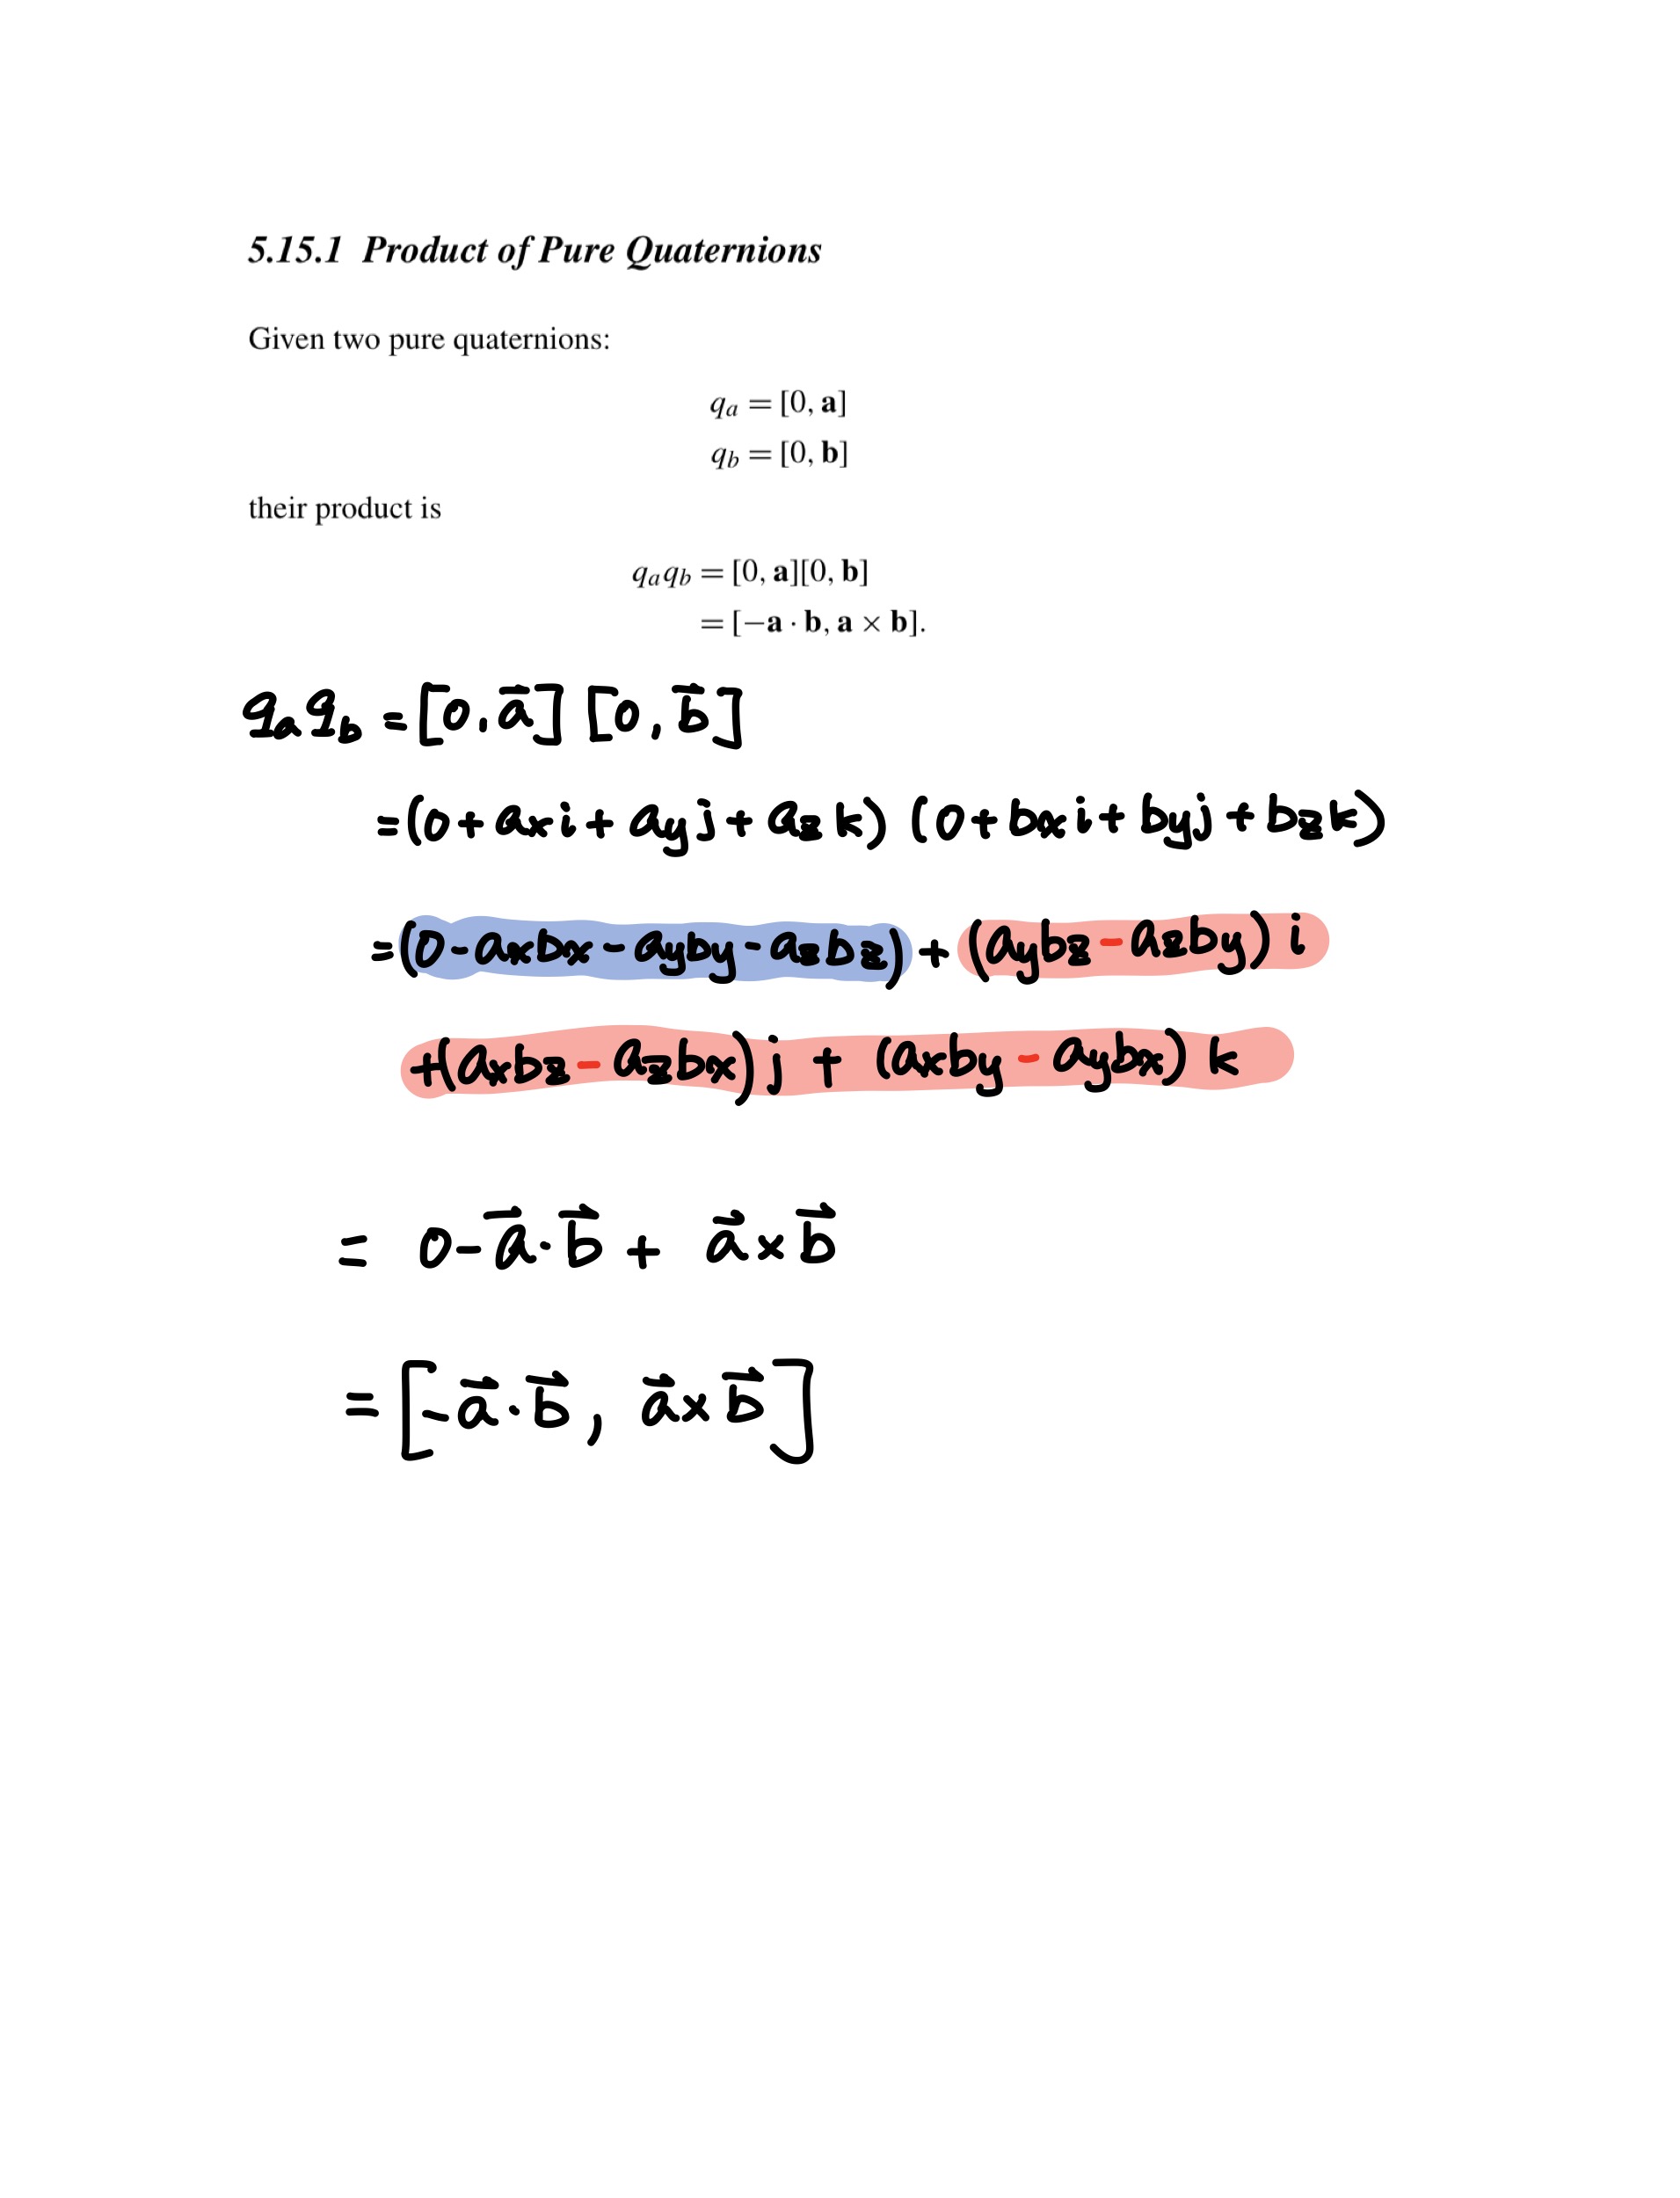 5.15.1 Product of Pure Quaternions
Given two pure quaternions:
qa = [0, a]
qb = [0, b]
their product is
qaqb = [0, a][0, b]
= [−a · b, a × b].
qaqb = [0. a⃗] [0, b⃗]
= (0 + axi + ayj + azk) (0 + bxi + byj + bzk)
= (0 - axbx - ayby - azbz) + (aybz - azby) i
+(axbz - azbx) j + (axby - aybx) k
= 0 - a⃗·b⃗ + a⃗×b⃗
= [-a⃗·b⃗, a⃗×b⃗]